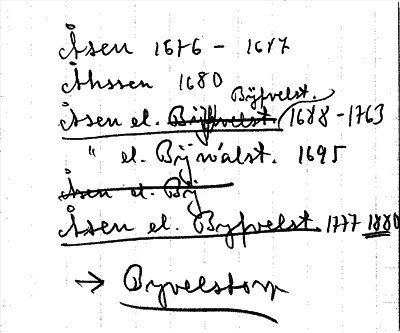 Åsen 1676 - 1677
Åhssen 1680
Byfvelst.
Åsen el. Byfvelst. 1688-1763
" el. Bywalst. 1695
Åsen el. By
Åsen el. Byfvelst. 1777 1880
→ Byvelstorp